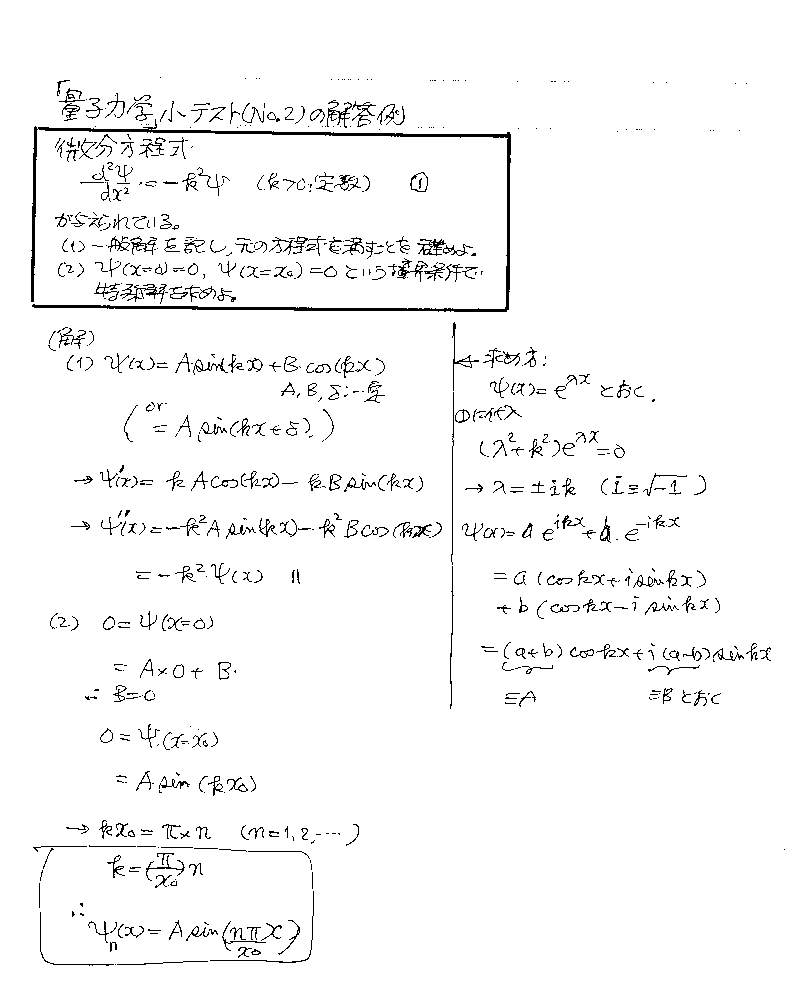 「量子力学」小テスト(No.2)の解答例
微分方程式
d²Ψ/dx² = -k²Ψ (k>0:定数) ①
が与えられている。
(1) 一般解を記し、元の方程式を満すことを確めよ。
(2) Ψ(x=0)=0, Ψ(x=x₀)=0 という境界条件で
特殊解を求めよ。
(解)
(1) Ψ(x)= A sin(kx)+B cos(kx)
A, B, δ:一定
( or = A sin(kx+δ) )
→ Ψ'(x)= k A cos(kx) - k B sin(kx)
→ Ψ''(x)= -k²A sin(kx) - k²B cos(kx)
= -k²Ψ(x) 〃
(2) 0=Ψ(x=0)
= A×0 + B
∴ B=0
0=Ψ(x=x₀)
= A sin(kx₀)
→ kx₀ = π×n (n=1,2,…)
k=(π/x₀)n
∴
Ψₙ(x)= A sin(nπ/x₀ x)
← 求め方:
Ψ(x)= e^{λx} とおく.
①に代入
(λ²+k²)e^{λx}=0
→ λ=±ik (i≡√-1)
Ψ(x)=a e^{ikx}+b e^{-ikx}
= a(cos kx+i sin kx)
+ b(cos kx-i sin kx)
=(a+b)cos kx+i(a-b)sin kx
≡A ≡B とおく